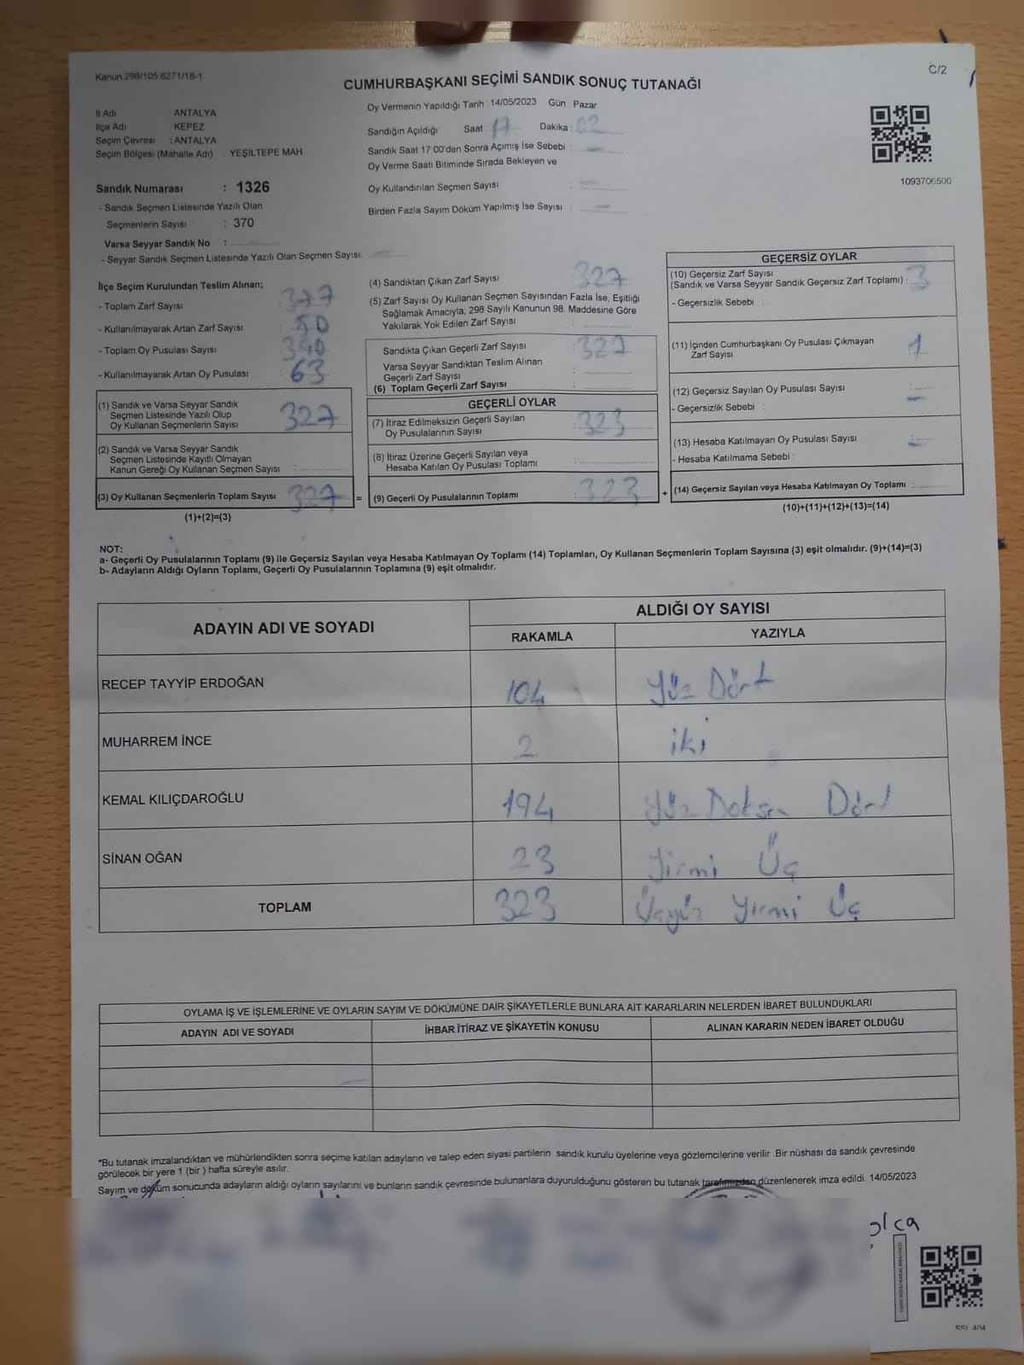 Kanun 298/105 6271/18-1
C/2
CUMHURBAŞKANI SEÇİMİ SANDIK SONUÇ TUTANAĞI
İl Adı ANTALYA
İlçe Adı KEPEZ
Seçim Çevresi : ANTALYA
Seçim Bölgesi (Mahalle Adı) YEŞİLTEPE MAH
Sandık Numarası : 1326
- Sandık Seçmen Listesinde Yazılı Olan
Seçmenlerin Sayısı : 370
Varsa Seyyar Sandık No :
- Seyyar Sandık Seçmen Listesinde Yazılı Olan Seçmen Sayısı
Oy Vermenin Yapıldığı Tarih 14/05/2023 Gün Pazar
Sandığın Açıldığı Saat 17 Dakika : 02
Sandık Saat 17:00'den Sonra Açımış İse Sebebi
Oy Verme Saati Bitiminde Sırada Bekleyen ve
Oy Kullandırılan Seçmen Sayısı
Birden Fazla Sayım Döküm Yapılmış İse Sayısı
1093706500
İlçe Seçim Kurulundan Teslim Alınan;
- Toplam Zarf Sayısı 377
- Kullanılmayarak Artan Zarf Sayısı 50
- Toplam Oy Pusulası Sayısı
- Kullanılmayarak Artan Oy Pusulası 63
(1) Sandık ve Varsa Seyyar Sandık
Seçmen Listesinde Yazılı Olup
Oy Kullanan Seçmenlerin Sayısı 327
(2) Sandık ve Varsa Seyyar Sandık
Seçmen Listesinde Kayıtlı Olmayan
Kanun Gereği Oy Kullanan Seçmen Sayısı :
(3) Oy Kullanan Seçmenlerin Toplam Sayısı 327 =
(1)+(2)=(3)
(4) Sandıktan Çıkan Zarf Sayısı 327
(5) Zarf Sayısı Oy Kullanan Seçmen Sayısından Fazla İse, Eşitliği
Sağlamak Amacıyla, 298 Sayılı Kanunun 98. Maddesine Göre
Yakılarak Yok Edilen Zarf Sayısı
Sandıkta Çıkan Geçerli Zarf Sayısı 327
Varsa Seyyar Sandıktan Teslim Alınan
Geçerli Zarf Sayısı
(6) Toplam Geçerli Zarf Sayısı
GEÇERLİ OYLAR
(7) İtiraz Edilmeksizin Geçerli Sayılan
Oy Pusulalarının Sayısı 323
(8) İtiraz Üzerine Geçerli Sayılan veya
Hesaba Katılan Oy Pusulası Toplamı
(9) Geçerli Oy Pusulalarının Toplamı 323 +
GEÇERSİZ OYLAR
(10) Geçersiz Zarf Sayısı
(Sandık ve Varsa Seyyar Sandık Geçersiz Zarf Toplamı) : 3
- Geçersizlik Sebebi :
(11) İçinden Cumhurbaşkanı Oy Pusulası Çıkmayan
Zarf Sayısı 1
(12) Geçersiz Sayılan Oy Pusulası Sayısı -
- Geçersizlik Sebebi :
(13) Hesaba Katılmayan Oy Pusulası Sayısı
- Hesaba Katılmama Sebebi :
(14) Geçersiz Sayılan veya Hesaba Katılmayan Oy Toplamı :
(10)+(11)+(12)+(13)=(14)
NOT:
a- Geçerli Oy Pusulalarının Toplamı (9) ile Geçersiz Sayılan veya Hesaba Katılmayan Oy Toplamı (14) Toplamları, Oy Kullanan Seçmenlerin Toplam Sayısına (3) eşit olmalıdır. (9)+(14)=(3)
b- Adayların Aldığı Oyların Toplamı, Geçerli Oy Pusulalarının Toplamına (9) eşit olmalıdır.
ADAYIN ADI VE SOYADI
ALDIĞI OY SAYISI
RAKAMLA YAZIYLA
RECEP TAYYİP ERDOĞAN 104 Yüz Dört
MUHARREM İNCE 2 iki
KEMAL KILIÇDAROĞLU 194 Yüz Doksan Dört
SİNAN OĞAN 23 Yirmi Üç
TOPLAM 323 Üçyüz Yirmi Üç
OYLAMA İŞ VE İŞLEMLERİNE VE OYLARIN SAYIM VE DÖKÜMÜNE DAİR ŞİKAYETLERLE BUNLARA AİT KARARLARIN NELERDEN İBARET BULUNDUKLARI
ADAYIN ADI VE SOYADI İHBAR İTİRAZ VE ŞİKAYETİN KONUSU ALINAN KARARIN NEDEN İBARET OLDUĞU
*Bu tutanak imzalandıktan ve mühürlendikten sonra seçime katılan adayların ve talep eden siyasi partilerin sandık kurulu üyelerine veya gözlemcilerine verilir. Bir nüshası da sandık çevresinde
görülecek bir yere 1 (bir ) hafta süreyle asılır.
Sayım ve döküm sonucunda adayların aldığı oyların sayılarını ve bunların sandık çevresinde bulunanlara duyurulduğunu gösteren bu tutanak tarafımızdan düzenlenerek imza edildi. 14/05/2023
olca